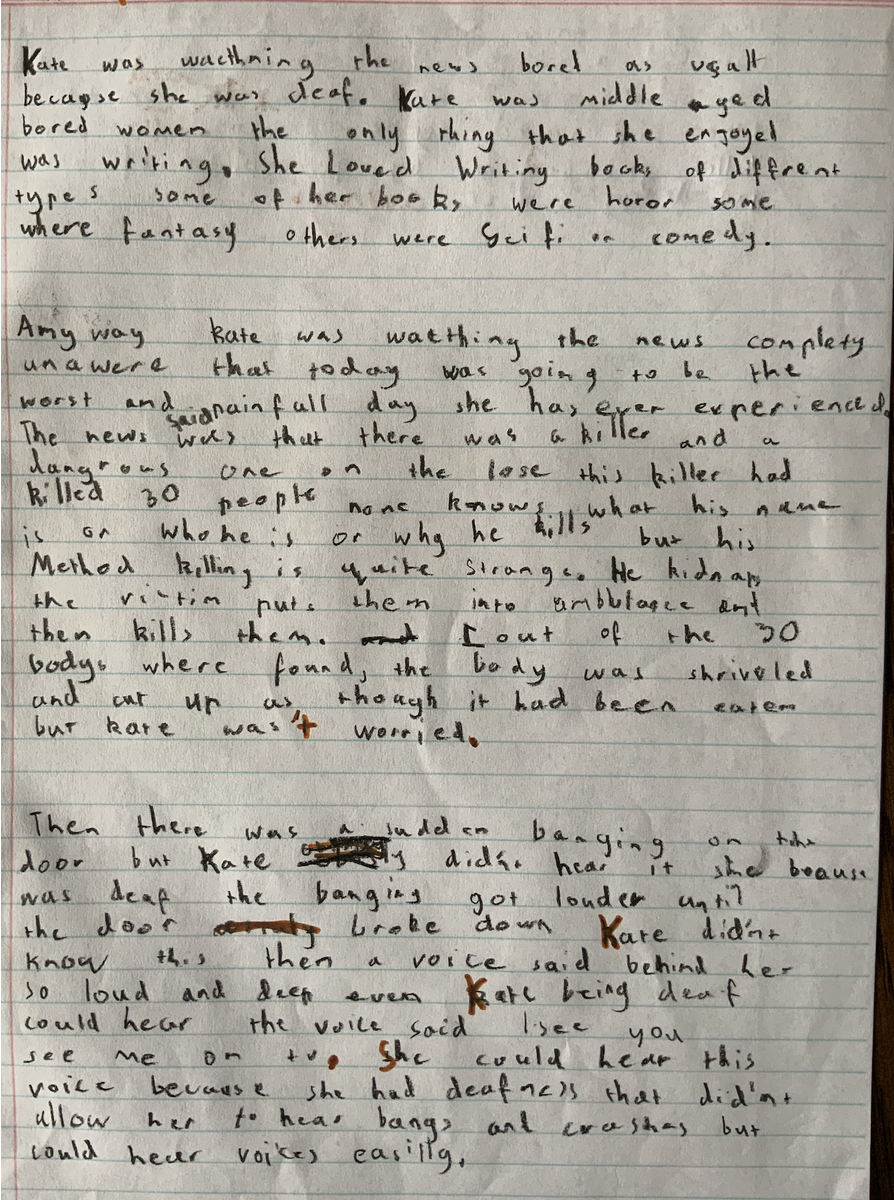 Kate was wacthning the news bored as usall
because she was deaf. Kate was middle aged
bored women the only thing that she enjoyed
was writing. She Loved Writing books of diffrent
types some of her books were horor some
where fantasy others were Sci fi or comedy.
Amy way Kate was wacthing the news complety
unawere that today was going to be the
worst and painfull day she has ever experienced.
The news said was that there was a killer and a
dangrous one on the lose this killer had
killed 30 people none knows what his name
is or who he is or why he kills but his
Method killing is quite strange. He kidnaps
the victim puts them into ambulance and
then kills them. and I out of the 30
bodys where found, the body was shriveled
and cut up as though it had been eaten
but kate was't worried.
Then there was a sudden banging on the
door but Kate didn't hear it she beause
was deaf the banging got louder until
the door broke down Kate did'nt
know this then a voice said behind her
so loud and deep even Kate being deaf
could hear the voice said I see you
see me on tv. She could hear this
voice because she had deafness that did'nt
allow her to hear bangs and crashes but
could hear voices easilly.